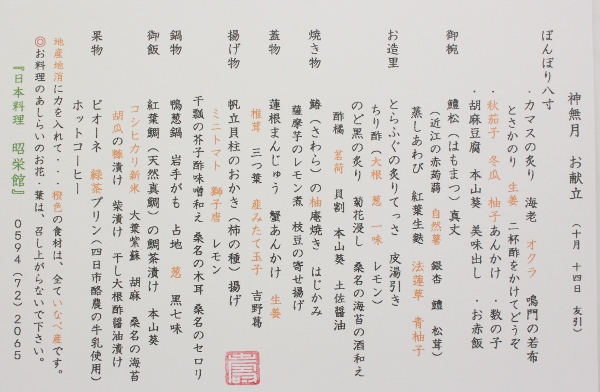 神無月　お献立　（十月　十四日　友引）
ぼんぼり八寸
・カマスの炙り　海老　オクラ　鳴門の若布
とさかのり　生姜　二杯酢をかけてどうぞ
・秋茄子　冬瓜　柚子あんかけ　・数の子
・胡麻豆腐　本山葵　美味出し　・お赤飯
御椀　鱧松（はもまつ）真丈
（近江の赤蒟蒻　自然薯　銀杏　鱧　松茸）
蒸しあわび　紅葉生麩　法蓮草　青柚子
お造里　とらふぐの炙りてっさ　皮湯引き
ちり酢（大根　葱　一味　レモン）
のど黒の炙り　菊花浸し　桑名の海苔の酒和え
酢橘　茗荷　貝割　本山葵　土佐醤油
焼き物　鰆（さわら）の柚庵焼き　はじかみ
薩摩芋のレモン煮　枝豆の寄せ揚げ
蓋物　蓮根まんじゅう　蟹あんかけ　生姜
椎茸　三つ葉　産みたて玉子　吉野葛
揚げ物　帆立貝柱のおかき（柿の種）揚げ
ミニトマト　獅子唐　レモン
干瓢の芥子酢味噌和え　桑名の木耳　桑名のセロリ
鍋物　鴨葱鍋　岩手がも　占地　葱　黒七味
御飯　紅葉鯛（天然真鯛）の鯛茶漬け　本山葵
コシヒカリ新米　大葉紫蘇　胡麻　桑名の海苔
胡瓜の糠漬け　柴漬け　干し大根酢醤油漬け
果物　ピオーネ　緑茶プリン（四日市酪農の牛乳使用）
ホットコーヒー
地産地消に力を入れて・・・橙色の食材は、全ていなべ産です。
◎お料理のあしらいのお花・葉は、召し上がらないで下さい。
『日本料理　昭栄館』　０５９４（７２）２０６５